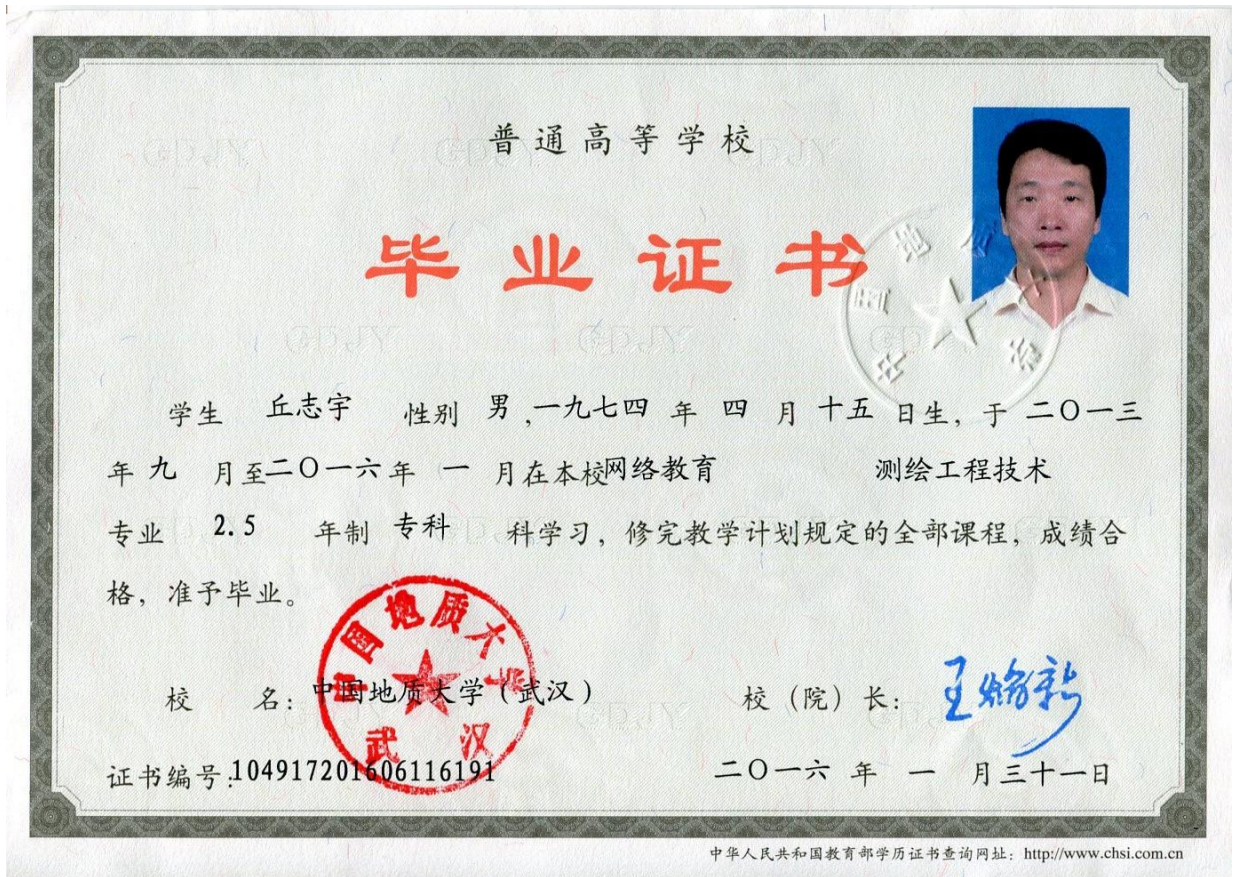 普通高等学校
毕业证书
学生 丘志宇 性别 男,一九七四 年 四 月 十五 日生,于 二〇一三
年 九 月至二〇一六年 一 月在本校网络教育 测绘工程技术
专业 2.5 年制 专科 科学习,修完教学计划规定的全部课程,成绩合
格,准予毕业。
中国地质大学
武汉
校 名:中国地质大学(武汉) 校(院)长:王焰新
证书编号:104917201606116191 二〇一六 年 一 月三十一日
中华人民共和国教育部学历证书查询网址:http://www.chsi.com.cn